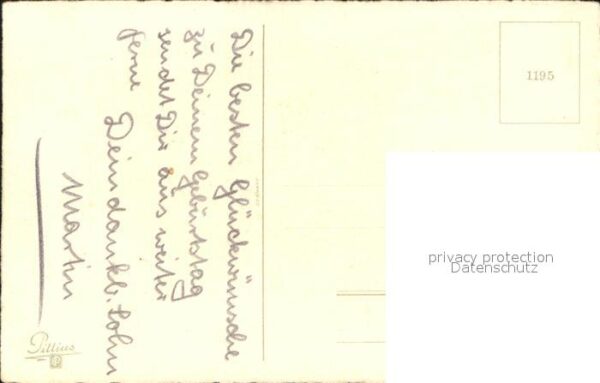 Die besten Glückwünsche
zu Deinem Geburtstag
sendet Dir aus weiter
Ferne Dein dankb. Sohn
Martin
1195
privacy protection
Datenschutz
Pittius